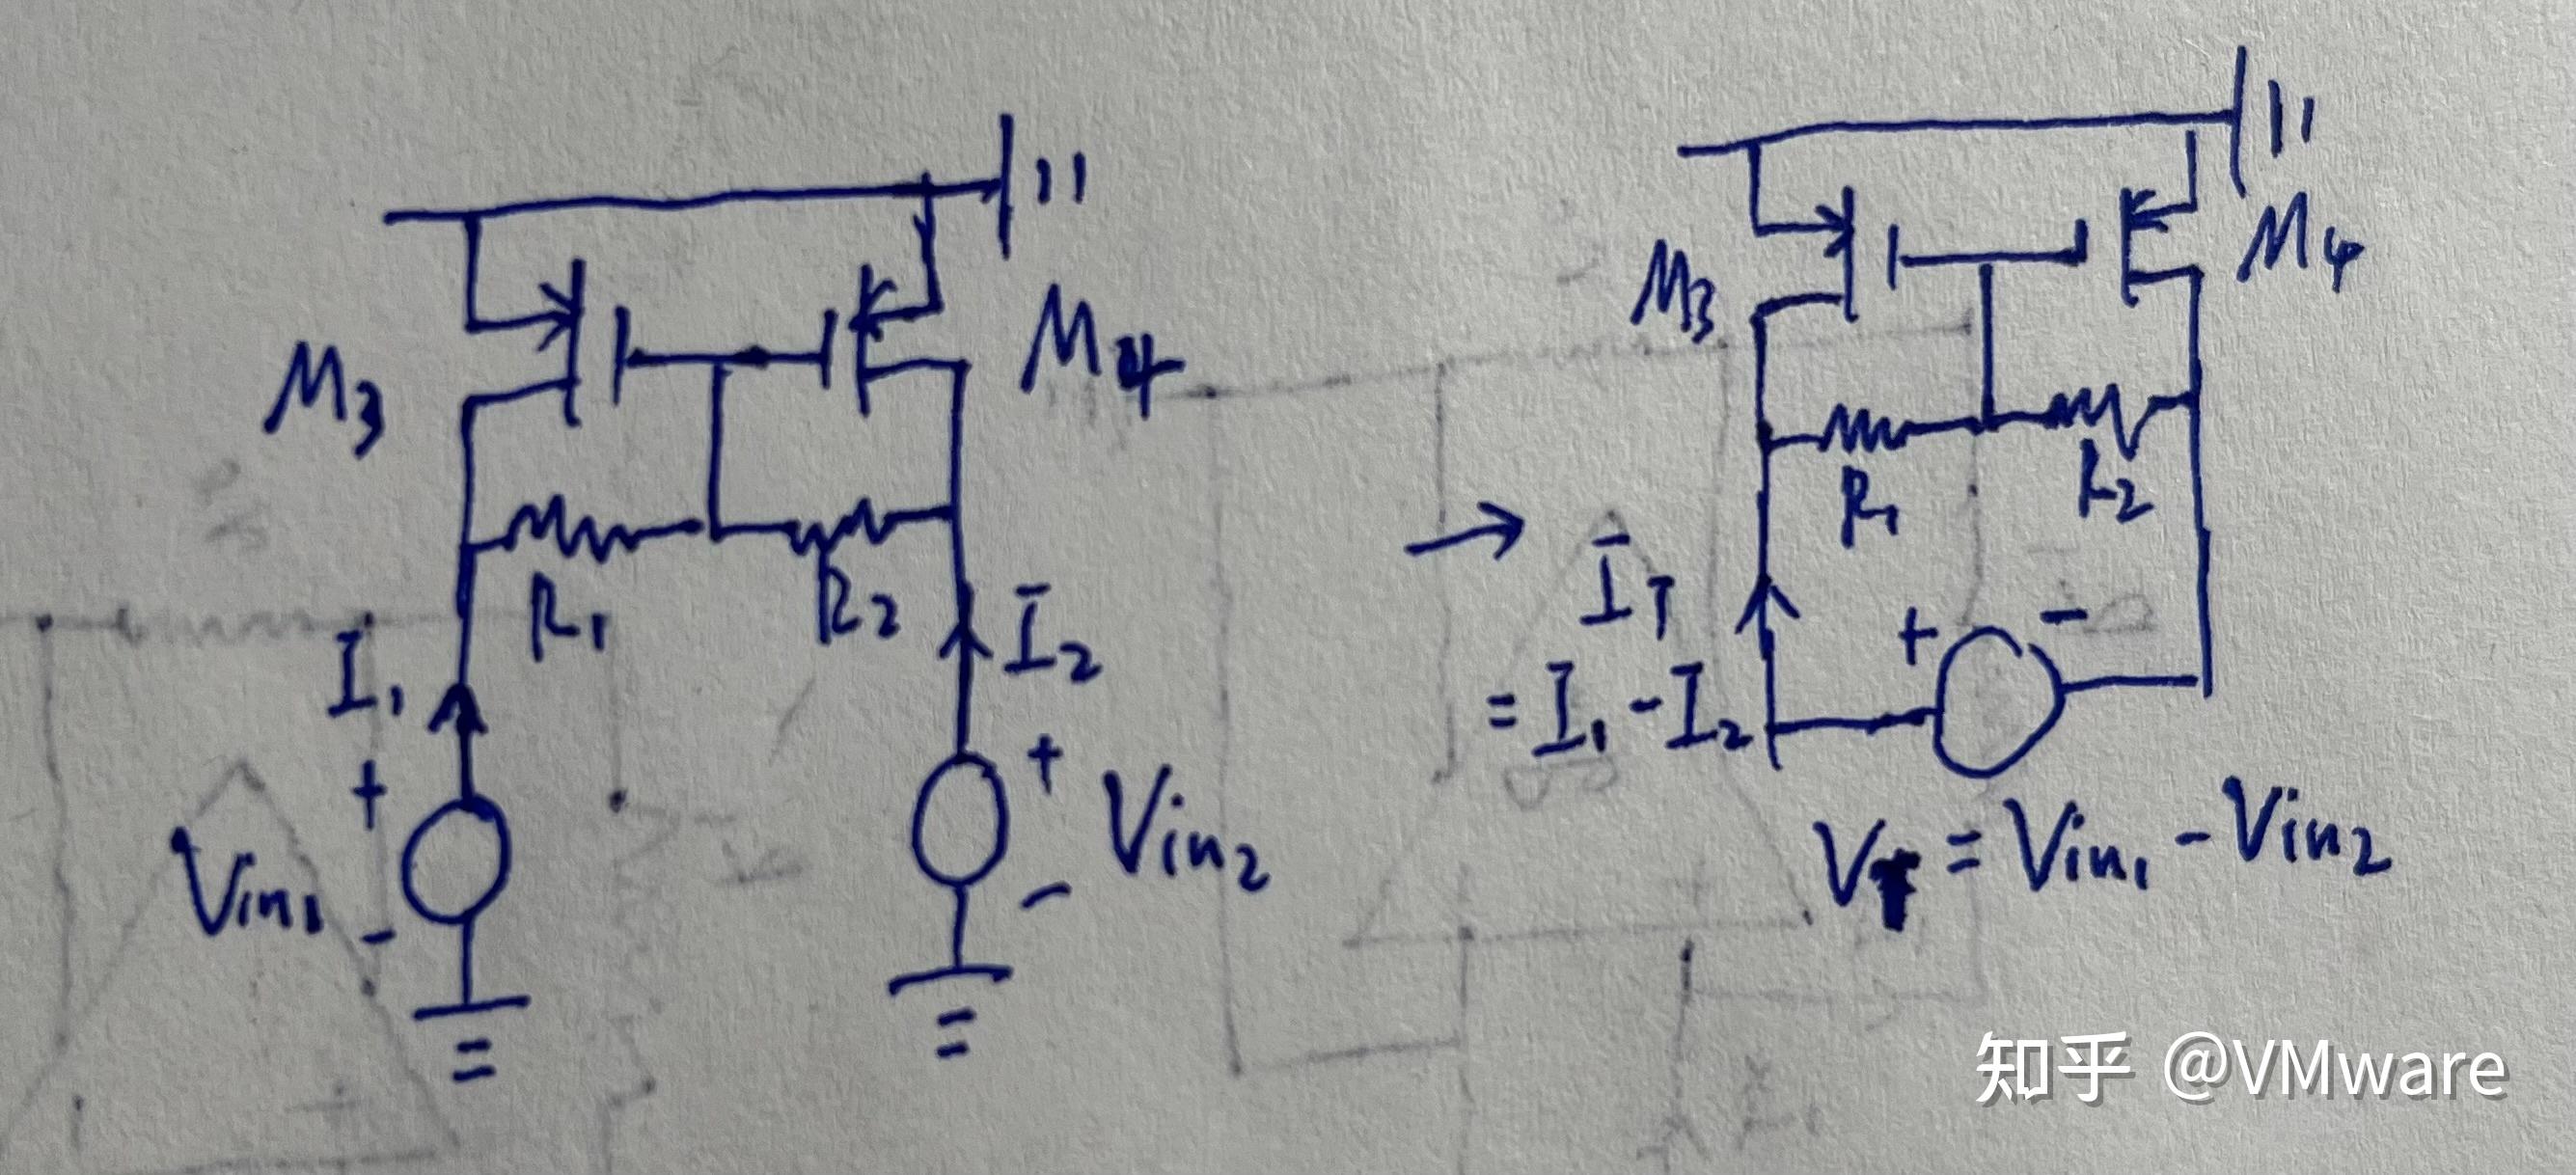 M3
M4
R1
R2
I1
I2
+
+
Vin1
Vin2
-
-
→
M3
M4
R1
R2
IT
= I1 - I2
+
-
VT = Vin1 - Vin2
知乎 @VMware